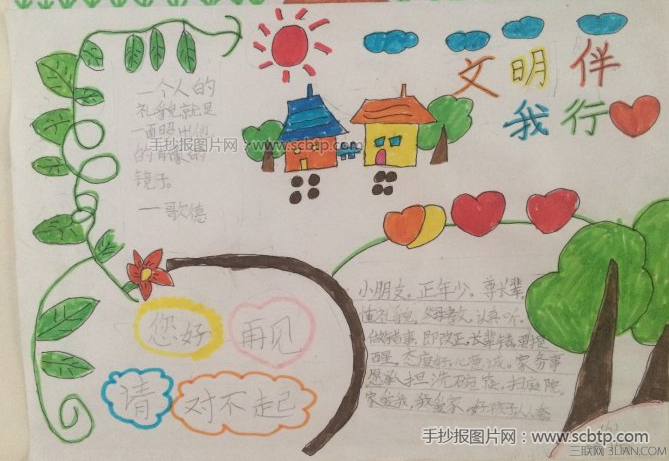 文明伴
我行
一个人的
礼貌就是
一面照出他
的肖像的
镜子。
一歌德
手抄报图片网：www.scbtp.com
您好
再见
请
对不起
小朋友，正年少，尊长辈，
懂礼貌，父母教，认真听，
做错事，即改正，长辈
态度好，心愿诚。家务事
愿承担，洗碗筷，扫庭院。
家爱我，我爱家，好孩子人人
手抄报图片网：www.scbtp.com
三联网 3LIAN.COM